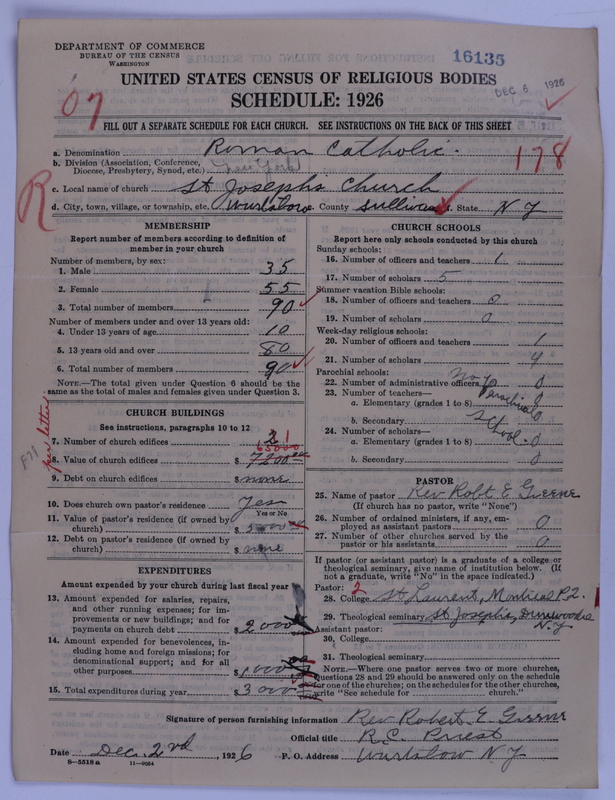 DEPARTMENT OF COMMERCE
BUREAU OF THE CENSUS
WASHINGTON
16135
DEC 6 1926
UNITED STATES CENSUS OF RELIGIOUS BODIES
SCHEDULE: 1926
FILL OUT A SEPARATE SCHEDULE FOR EACH CHURCH. SEE INSTRUCTIONS ON THE BACK OF THIS SHEET
178
a. Denomination Roman Catholic
b. Division (Association, Conference, Diocese, Presbytery, Synod, etc.) New York
R
c. Local name of church St Josephs Church
d. City, town, village, or township, etc. Wurtsboro County Sullivan State N Y
MEMBERSHIP
Report number of members according to definition of member in your church
Number of members, by sex:
1. Male 35
2. Female 55
3. Total number of members 90
Number of members under and over 13 years old:
4. Under 13 years of age 10
5. 13 years old and over 80
6. Total number of members 90
NOTE.—The total given under Question 6 should be the same as the total of males and females given under Question 3.
CHURCH BUILDINGS
See instructions, paragraphs 10 to 12
per letter
7. Number of church edifices 2 1
65000
8. Value of church edifices $ 7200
9. Debt on church edifices $ none
10. Does church own pastor's residence Yes
Yes or No
11. Value of pastor's residence (if owned by church) $
12. Debt on pastor's residence (if owned by church) $ none
EXPENDITURES
Amount expended by your church during last fiscal year
13. Amount expended for salaries, repairs, and other running expenses; for improvements or new buildings; and for payments on church debt $ 2000
14. Amount expended for benevolences, including home and foreign missions; for denominational support; and for all other purposes $ 1000
15. Total expenditures during year $ 3000
CHURCH SCHOOLS
Report here only schools conducted by this church
Sunday schools:
16. Number of officers and teachers 1
17. Number of scholars 5
Summer vacation Bible schools:
18. Number of officers and teachers 0
19. Number of scholars 0
Week-day religious schools:
20. Number of officers and teachers 1
21. Number of scholars 4
Parochial schools: No Parochial School
22. Number of administrative officers 0
23. Number of teachers—
a. Elementary (grades 1 to 8) 0
b. Secondary
24. Number of scholars—
a. Elementary (grades 1 to 8) 0
b. Secondary 0
PASTOR
25. Name of pastor Rev Robt E Greene
(If church has no pastor, write "None")
26. Number of ordained ministers, if any, employed as assistant pastors 0
27. Number of other churches served by the pastor or his assistants 0
If pastor (or assistant pastor) is a graduate of a college or theological seminary, give name of institution below. (If not a graduate, write "No" in the space indicated.)
Pastor: 2
28. College St Laurent, Montreal P.Q.
29. Theological seminary St Josephs, Dunwoodie N.Y
Assistant pastor:
30. College
31. Theological seminary
NOTE.—Where one pastor serves two or more churches, questions 28 and 29 should be answered only on the schedule for one of the churches; on the schedules for the other churches, write "See schedule for church."
Signature of person furnishing information Rev Robert E. Greene
Official title R.C. Priest
Date Dec. 2nd, 1926 P. O. Address Wurtsboro N Y
8—5518 a 11—9064